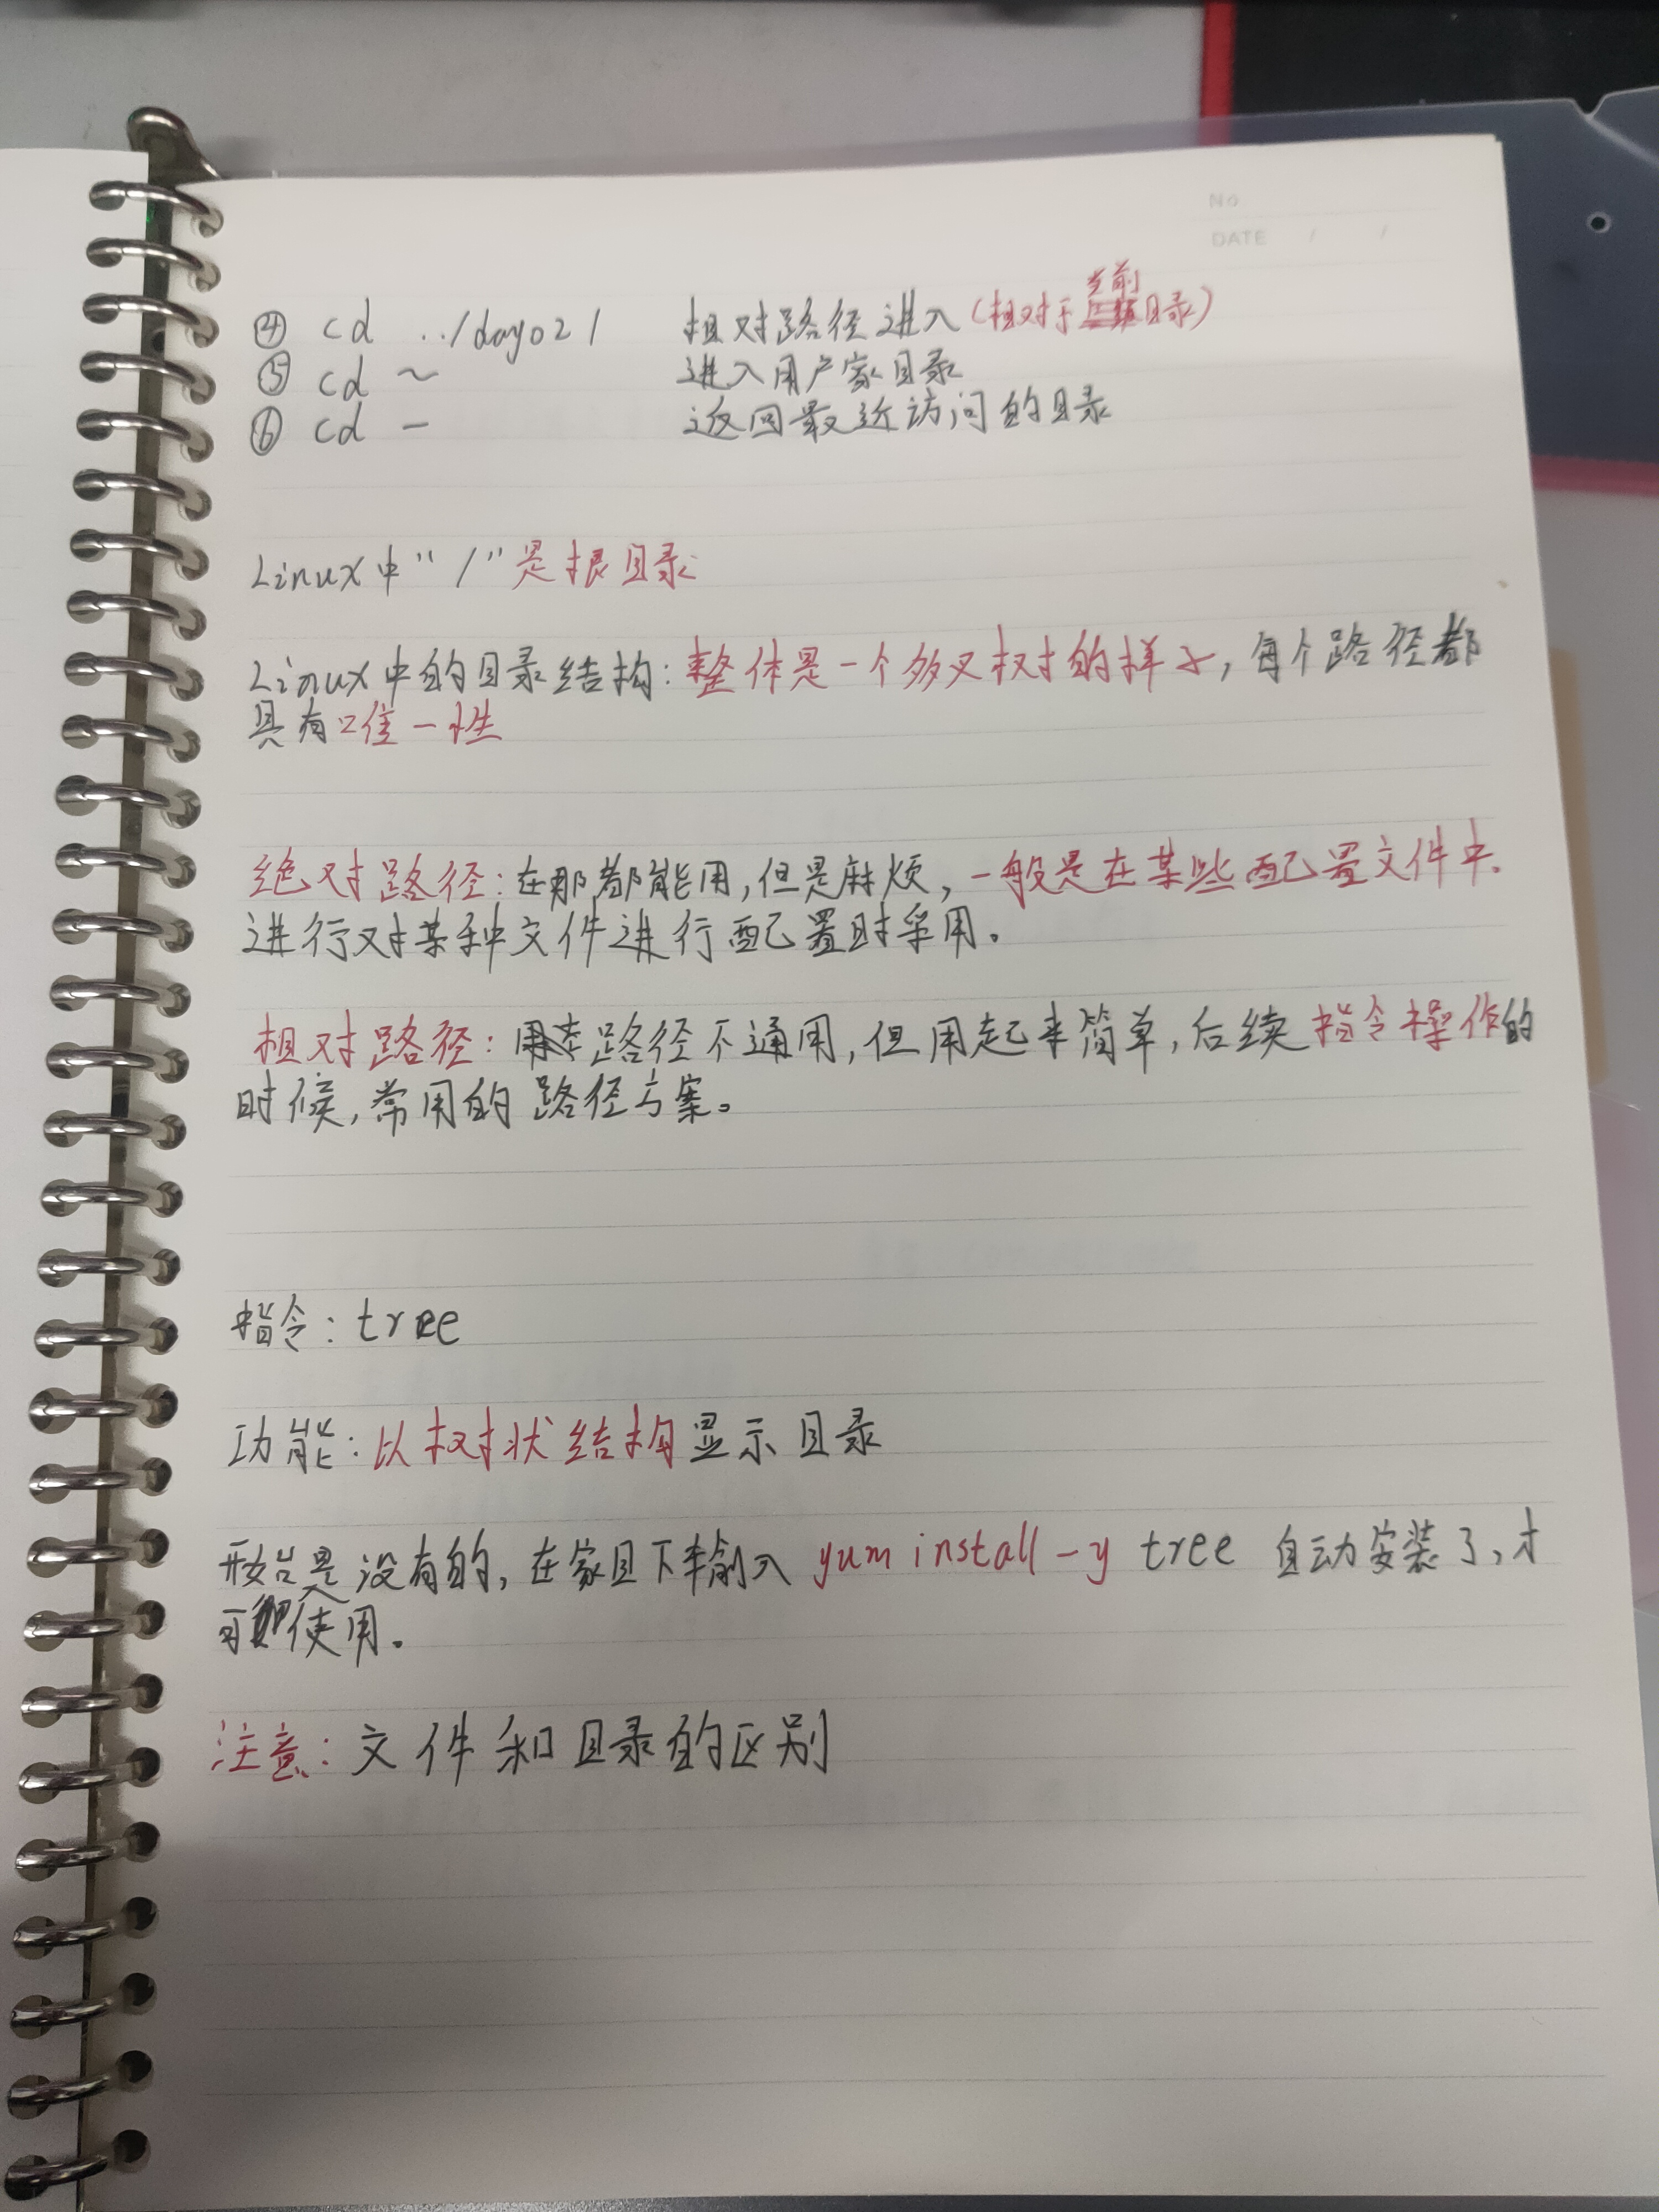 No
DATE / /
④ cd ../day021 相对路径进入(相对于当前目录)
⑤ cd ~ 进入用户家目录
⑥ cd - 返回最近访问的目录
Linux中"/"是根目录
Linux中的目录结构:整体是一个多叉树的样子,每个路径都
具有唯一性
绝对路径:在那都能用,但是麻烦,一般是在某些配置文件中.
进行对某种文件进行配置时采用。
相对路径: 路径不通用,但用起来简单,后续指令操作的
时候,常用的路径方案。
指令: tree
功能:以树状结构显示目录
开始是没有的,在家目下输入 yum install -y tree 自动安装了,才
可使用.
注意:文件和目录的区别